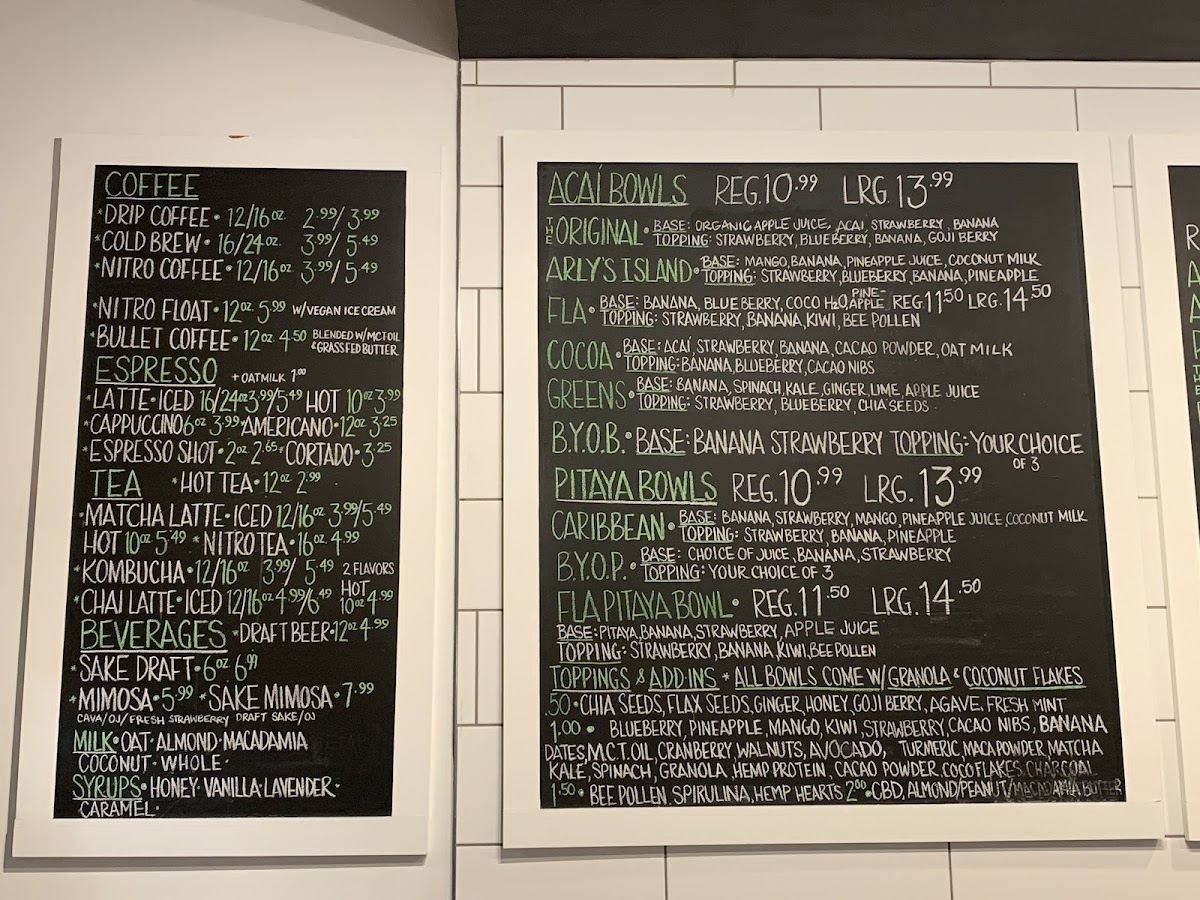 COFFEE
*DRIP COFFEE• 12/16oz 2.99/3.99
*COLD BREW• 16/24oz. 3.99/5.49
*NITRO COFFEE•12/16oz 3.99/5.49
*NITRO FLOAT•12oz.5.99 W/VEGAN ICE CREAM
*BULLET COFFEE•12oz 4.50 BLENDED W/MCT OIL
& GRASSFED BUTTER
ESPRESSO +OATMILK 1.00
*LATTE•ICED 16/24oz 3.99/5.49 HOT 10oz 3.99
*CAPPUCCINO 6oz 3.99 *AMERICANO•12oz 3.25
*ESPRESSO SHOT•2oz 2.65 *CORTADO•3.25
TEA *HOT TEA•12oz 2.99
*MATCHA LATTE•ICED 12/16oz 3.99/5.49
HOT 10oz 5.49 *NITRO TEA•16oz 4.99
*KOMBUCHA•12/16oz 3.99/5.49 2 FLAVORS
*CHAI LATTE•ICED 12/16oz 4.99/6.49 HOT 10oz 4.99
BEVERAGES *DRAFT BEER•12oz 4.99
*SAKE DRAFT•6oz 6.99
*MIMOSA•5.99 *SAKE MIMOSA•7.99
CAVA/OJ/FRESH STRAWBERRY DRAFT SAKE/OJ
MILK•OAT•ALMOND•MACADAMIA
COCONUT•WHOLE•
SYRUPS•HONEY•VANILLA•LAVENDER•
CARAMEL•
AÇAÍ BOWLS REG.10.99 LRG.13.99
THE ORIGINAL• BASE: ORGANIC APPLE JUICE, ACAI, STRAWBERRY, BANANA
TOPPING: STRAWBERRY, BLUEBERRY, BANANA, GOJI BERRY
ARLY'S ISLAND• BASE: MANGO, BANANA, PINEAPPLE JUICE, COCONUT MILK
TOPPING: STRAWBERRY, BLUEBERRY BANANA, PINEAPPLE
FLA• BASE: BANANA, BLUEBERRY, COCO H2O, PINE-APPLE REG 11.50 LRG.14.50
TOPPING: STRAWBERRY, BANANA, KIWI, BEE POLLEN
COCOA• BASE: AÇAÍ, STRAWBERRY, BANANA, CACAO POWDER, OAT MILK
TOPPING: BANANA, BLUEBERRY, CACAO NIBS
GREENS• BASE: BANANA, SPINACH, KALE, GINGER, LIME, APPLE JUICE
TOPPING: STRAWBERRY, BLUEBERRY, CHIA SEEDS
B.Y.O.B.• BASE: BANANA STRAWBERRY TOPPING: YOUR CHOICE
OF 3
PITAYA BOWLS REG.10.99 LRG.13.99
CARIBBEAN• BASE: BANANA, STRAWBERRY, MANGO, PINEAPPLE JUICE, COCONUT MILK
TOPPING: STRAWBERRY, BANANA, PINEAPPLE
B.Y.O.P.• BASE: CHOICE OF JUICE, BANANA, STRAWBERRY
TOPPING: YOUR CHOICE OF 3
FLA PITAYA BOWL• REG.11.50 LRG.14.50
BASE: PITAYA, BANANA, STRAWBERRY, APPLE JUICE
TOPPING: STRAWBERRY, BANANA, KIWI, BEE POLLEN
TOPPINGS & ADD-INS *ALL BOWLS COME W/ GRANOLA & COCONUT FLAKES
.50•CHIA SEEDS, FLAX SEEDS, GINGER, HONEY, GOJI BERRY, AGAVE, FRESH MINT
1.00• BLUEBERRY, PINEAPPLE, MANGO, KIWI, STRAWBERRY, CACAO NIBS, BANANA
DATES, M.C.T. OIL, CRANBERRY, WALNUTS, AVOCADO, TURMERIC, MACA POWDER, MATCHA
KALE, SPINACH, GRANOLA, HEMP PROTEIN, CACAO POWDER, COCO FLAKES, CHARCOAL
1.50• BEE POLLEN, SPIRULINA, HEMP HEARTS 2.00•CBD, ALMOND/PEANUT/MACADAMIA BUTTER